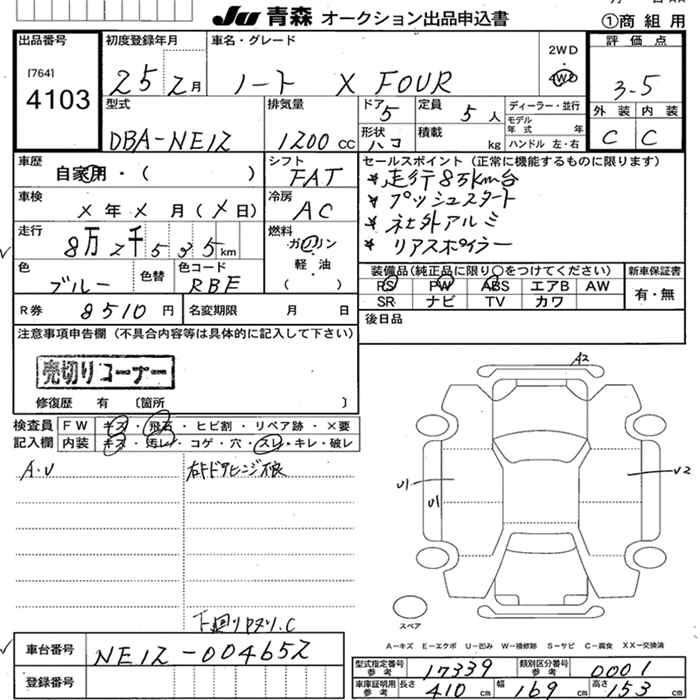 JU 青森 オークション出品申込書
①商 組 用
出品番号 初度登録年月 車名・グレード 評 価 点
[764] 4103
25 2月 ノート X FOUR 2WD 4WD 3-5
型式 排気量 ドア 5 定員 5 人 ディーラー・並行 外 装 内 装
DBA-NE12 1200 cc 形状 ハコ 積載 kg モデル年式 年 ハンドル 左・右 C C
車歴 シフト セールスポイント(正常に機能するものに限ります)
自家用・( ) FAT * 走行8万km台
車検 冷房 * プッシュスタート
X 年 X 月 (X 日) AC * 社外アルミ
走行 燃料 * リアスポイラー
8万2千535km ガソリン
軽・油
( )
色 色替 色コード 装備品(純正品に限り○をつけてください) 新車保証書
ブルー RBE PS PW ABS エアB AW 有・無
SR ナビ TV カワ
R券 8510 円 名変期限 月 日
後日品
注意事項申告欄(不具合内容等は具体的に記入して下さい)
売切りコーナー
修復歴 有 〔箇所 〕
検査員 FW キズ・飛石・ヒビ割・リペア跡・×要
記入欄 内装 キズ・汚レ・コゲ・穴・スレ・キレ・破レ
A・U 右ドアヒンジ不良
下廻りサビ.C
A2
U1
U1
U2
スペア
A-キズ E-エクボ U-凹み W-補修跡 S-サビ C-腐食 XX-交換済
車台番号 NE12-004652
登録番号
型式指定番号 参考 17339 類別区分番号 参考 0001
車庫証明用 参考 長さ 410 cm 幅 169 cm 高さ 153 cm